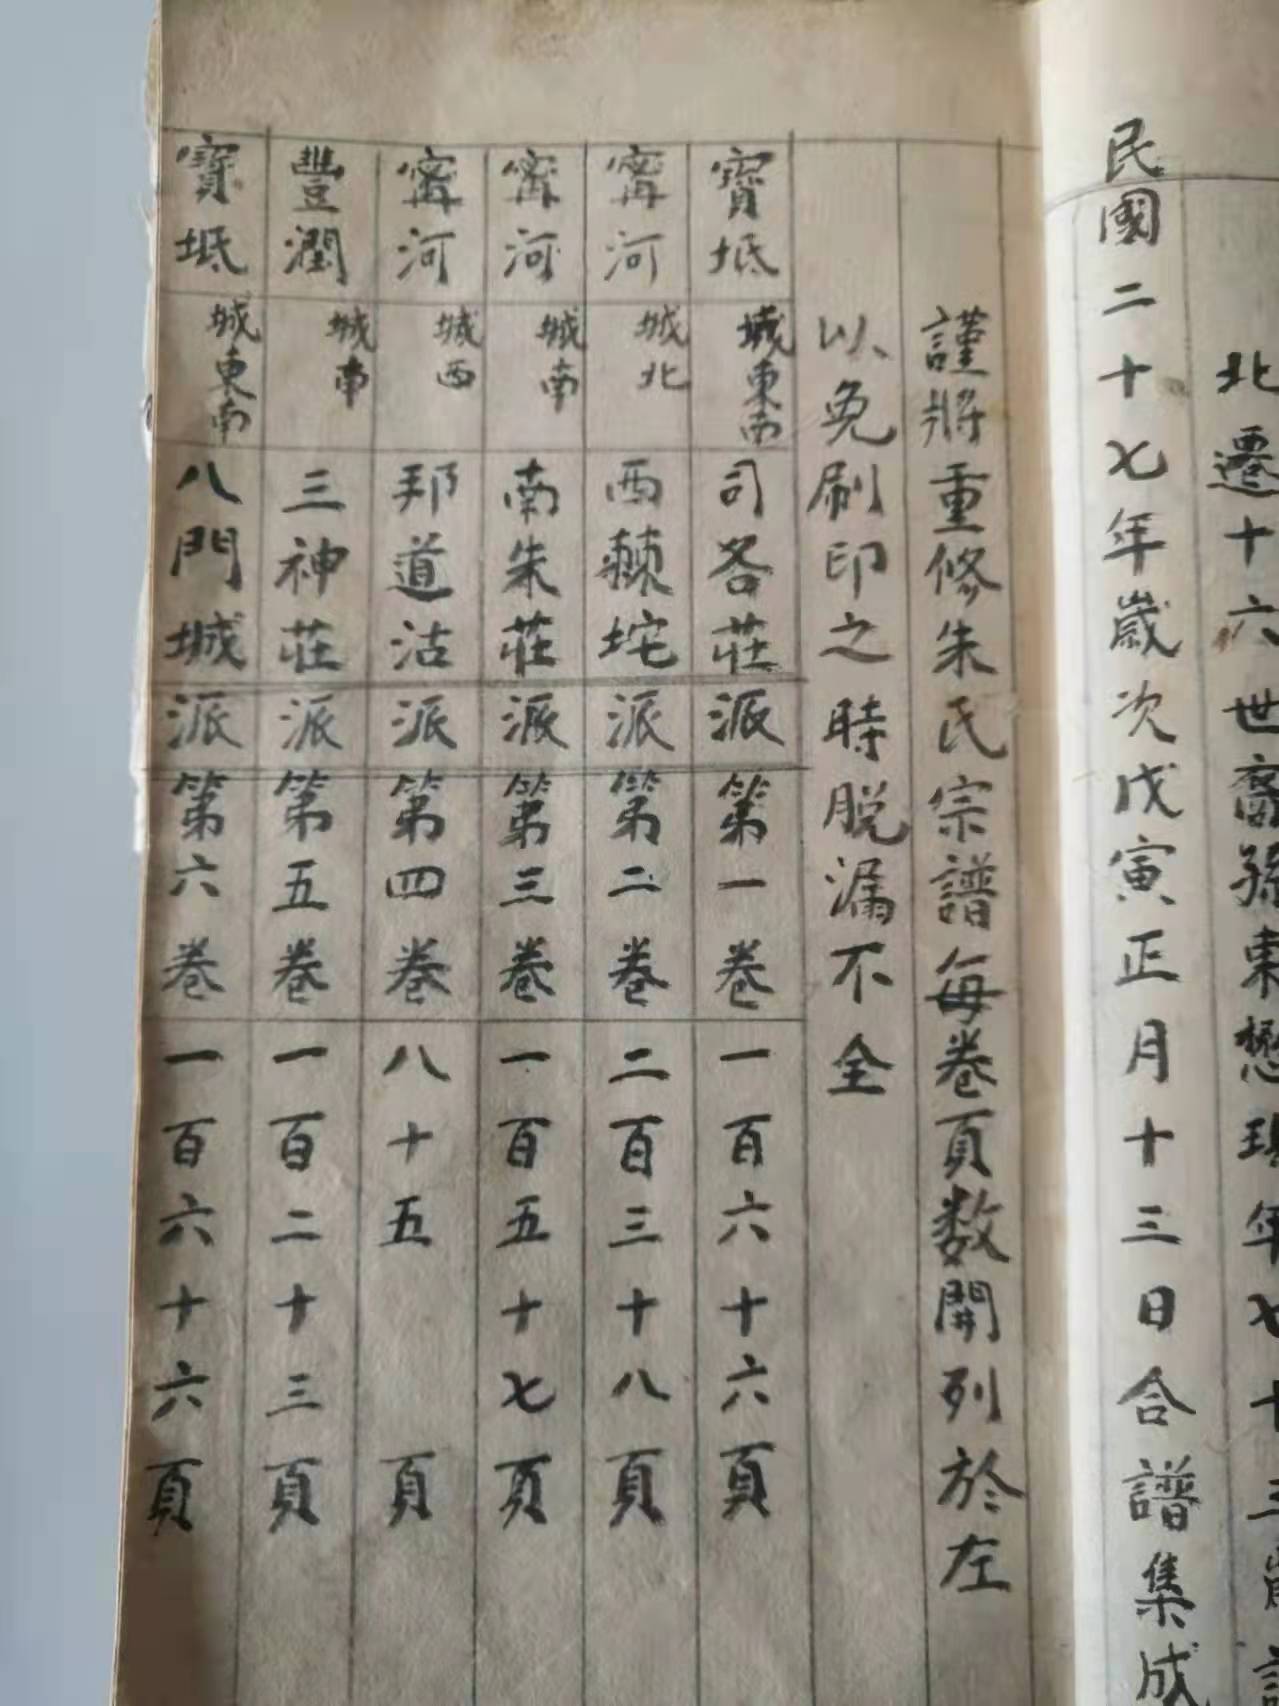 北遷十六世裔孫東懋年七十三歲
民國二十七年歲次戊寅正月十三日合譜集成
謹將重修朱氏宗譜每卷頁数開列於左
以免刷印之時脱漏不全
寶坻 城東南 司各莊 派 第一卷 一百六十六頁
甯河 城北 西棘坨 派 第二卷 二百三十八頁
甯河 城南 南朱莊 派 第三卷 一百五十七頁
甯河 城西 邦道沽 派 第四卷 八十五頁
豐潤 城南 三神莊 派 第五卷 一百二十三頁
寶坻 城東南 八門城 派 第六卷 一百六十六頁